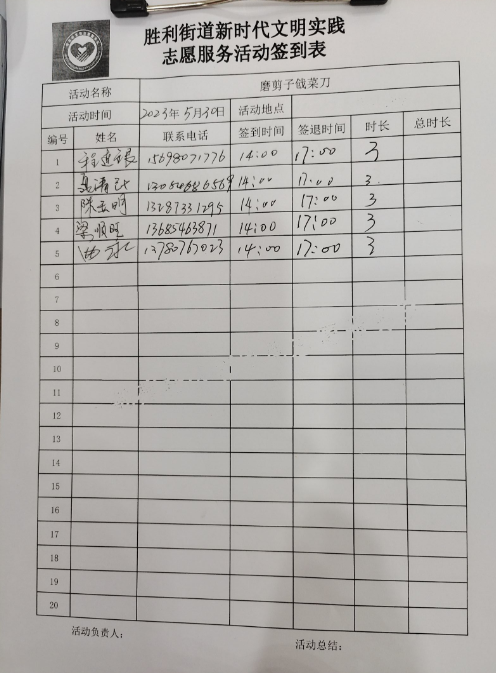 胜利街道新时代文明实践
志愿服务活动签到表
活动名称 磨剪子戗菜刀
活动时间 2023年5月30日 活动地点
编号 姓名 联系电话 签到时间 签退时间 时长 总时长
1 15698071776 14:00 17:00 3
2 14:00 17:00 3
3 陈玉明 13287331295 14:00 17:00 3
4 梁顺旺 13685463871 14:00 17:00 3
5 13780767023 14:00 17:00 3
6
7
8
9
10
11
12
13
14
15
16
17
18
19
20
活动负责人：
活动总结：